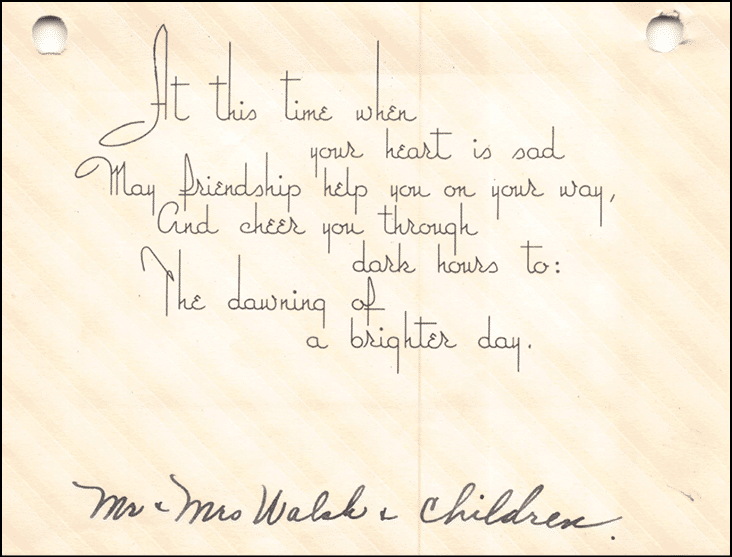 At this time when
your heart is sad
May friendship help you on your way,
And cheer you through
dark hours to:
The dawning of
a brighter day.
Mr & Mrs Walsh & Children.